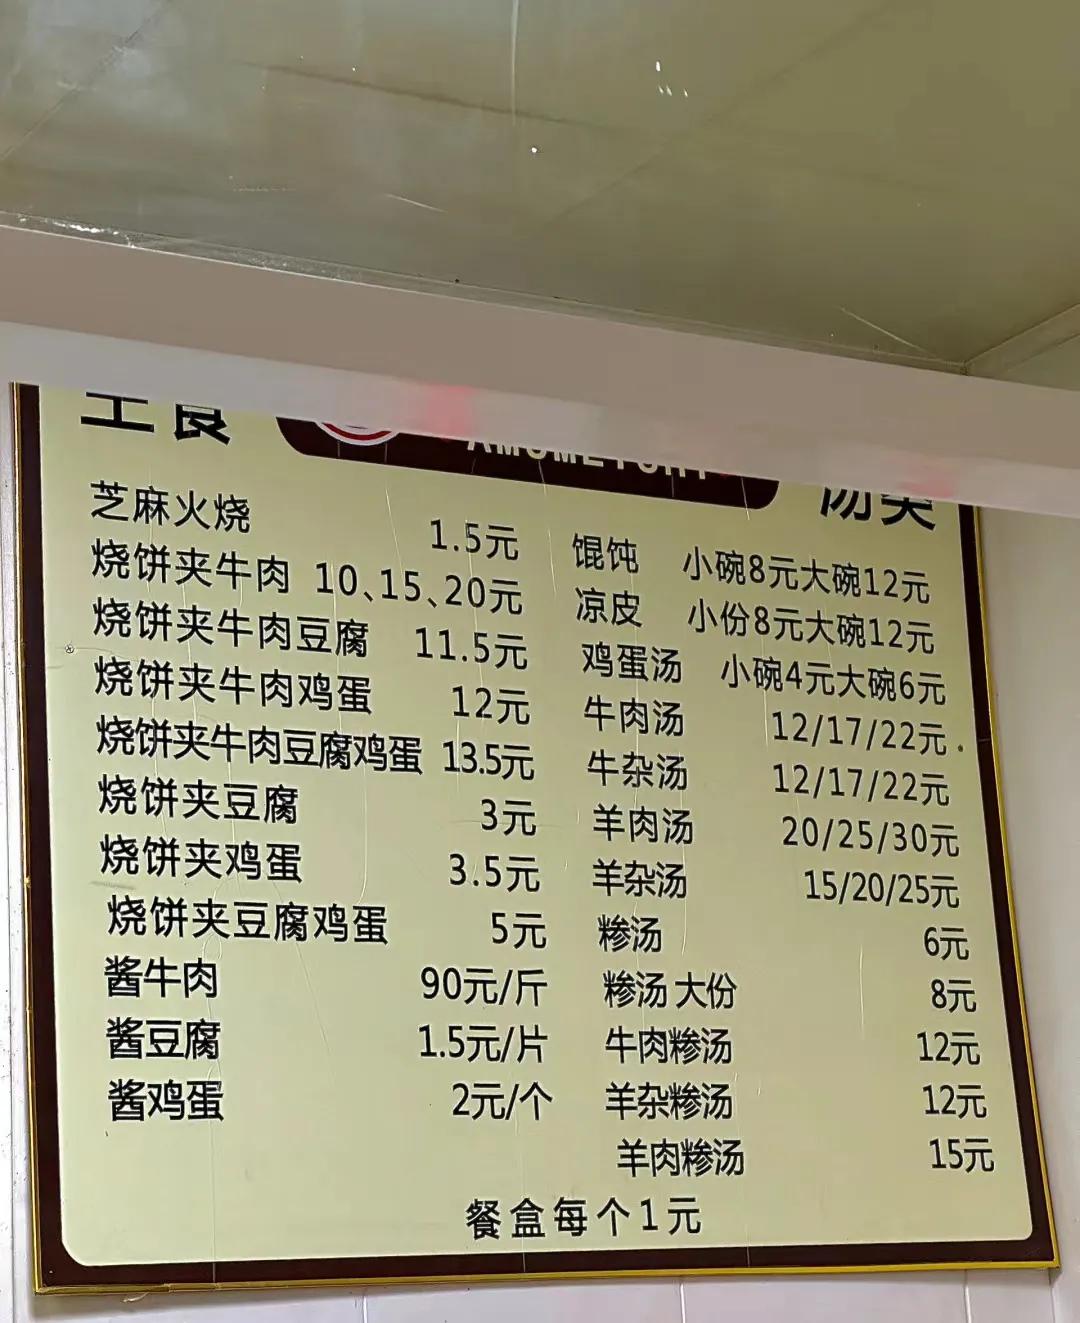 主食
芝麻火烧 1.5元
烧饼夹牛肉 10、15、20元
烧饼夹牛肉豆腐 11.5元
烧饼夹牛肉鸡蛋 12元
烧饼夹牛肉豆腐鸡蛋 13.5元
烧饼夹豆腐 3元
烧饼夹鸡蛋 3.5元
烧饼夹豆腐鸡蛋 5元
酱牛肉 90元/斤
酱豆腐 1.5元/片
酱鸡蛋 2元/个
汤类
馄饨 小碗8元大碗12元
凉皮 小份8元大碗12元
鸡蛋汤 小碗4元大碗6元
牛肉汤 12/17/22元
牛杂汤 12/17/22元
羊肉汤 20/25/30元
羊杂汤 15/20/25元
糁汤 6元
糁汤 大份 8元
牛肉糁汤 12元
羊杂糁汤 12元
羊肉糁汤 15元
餐盒每个1元